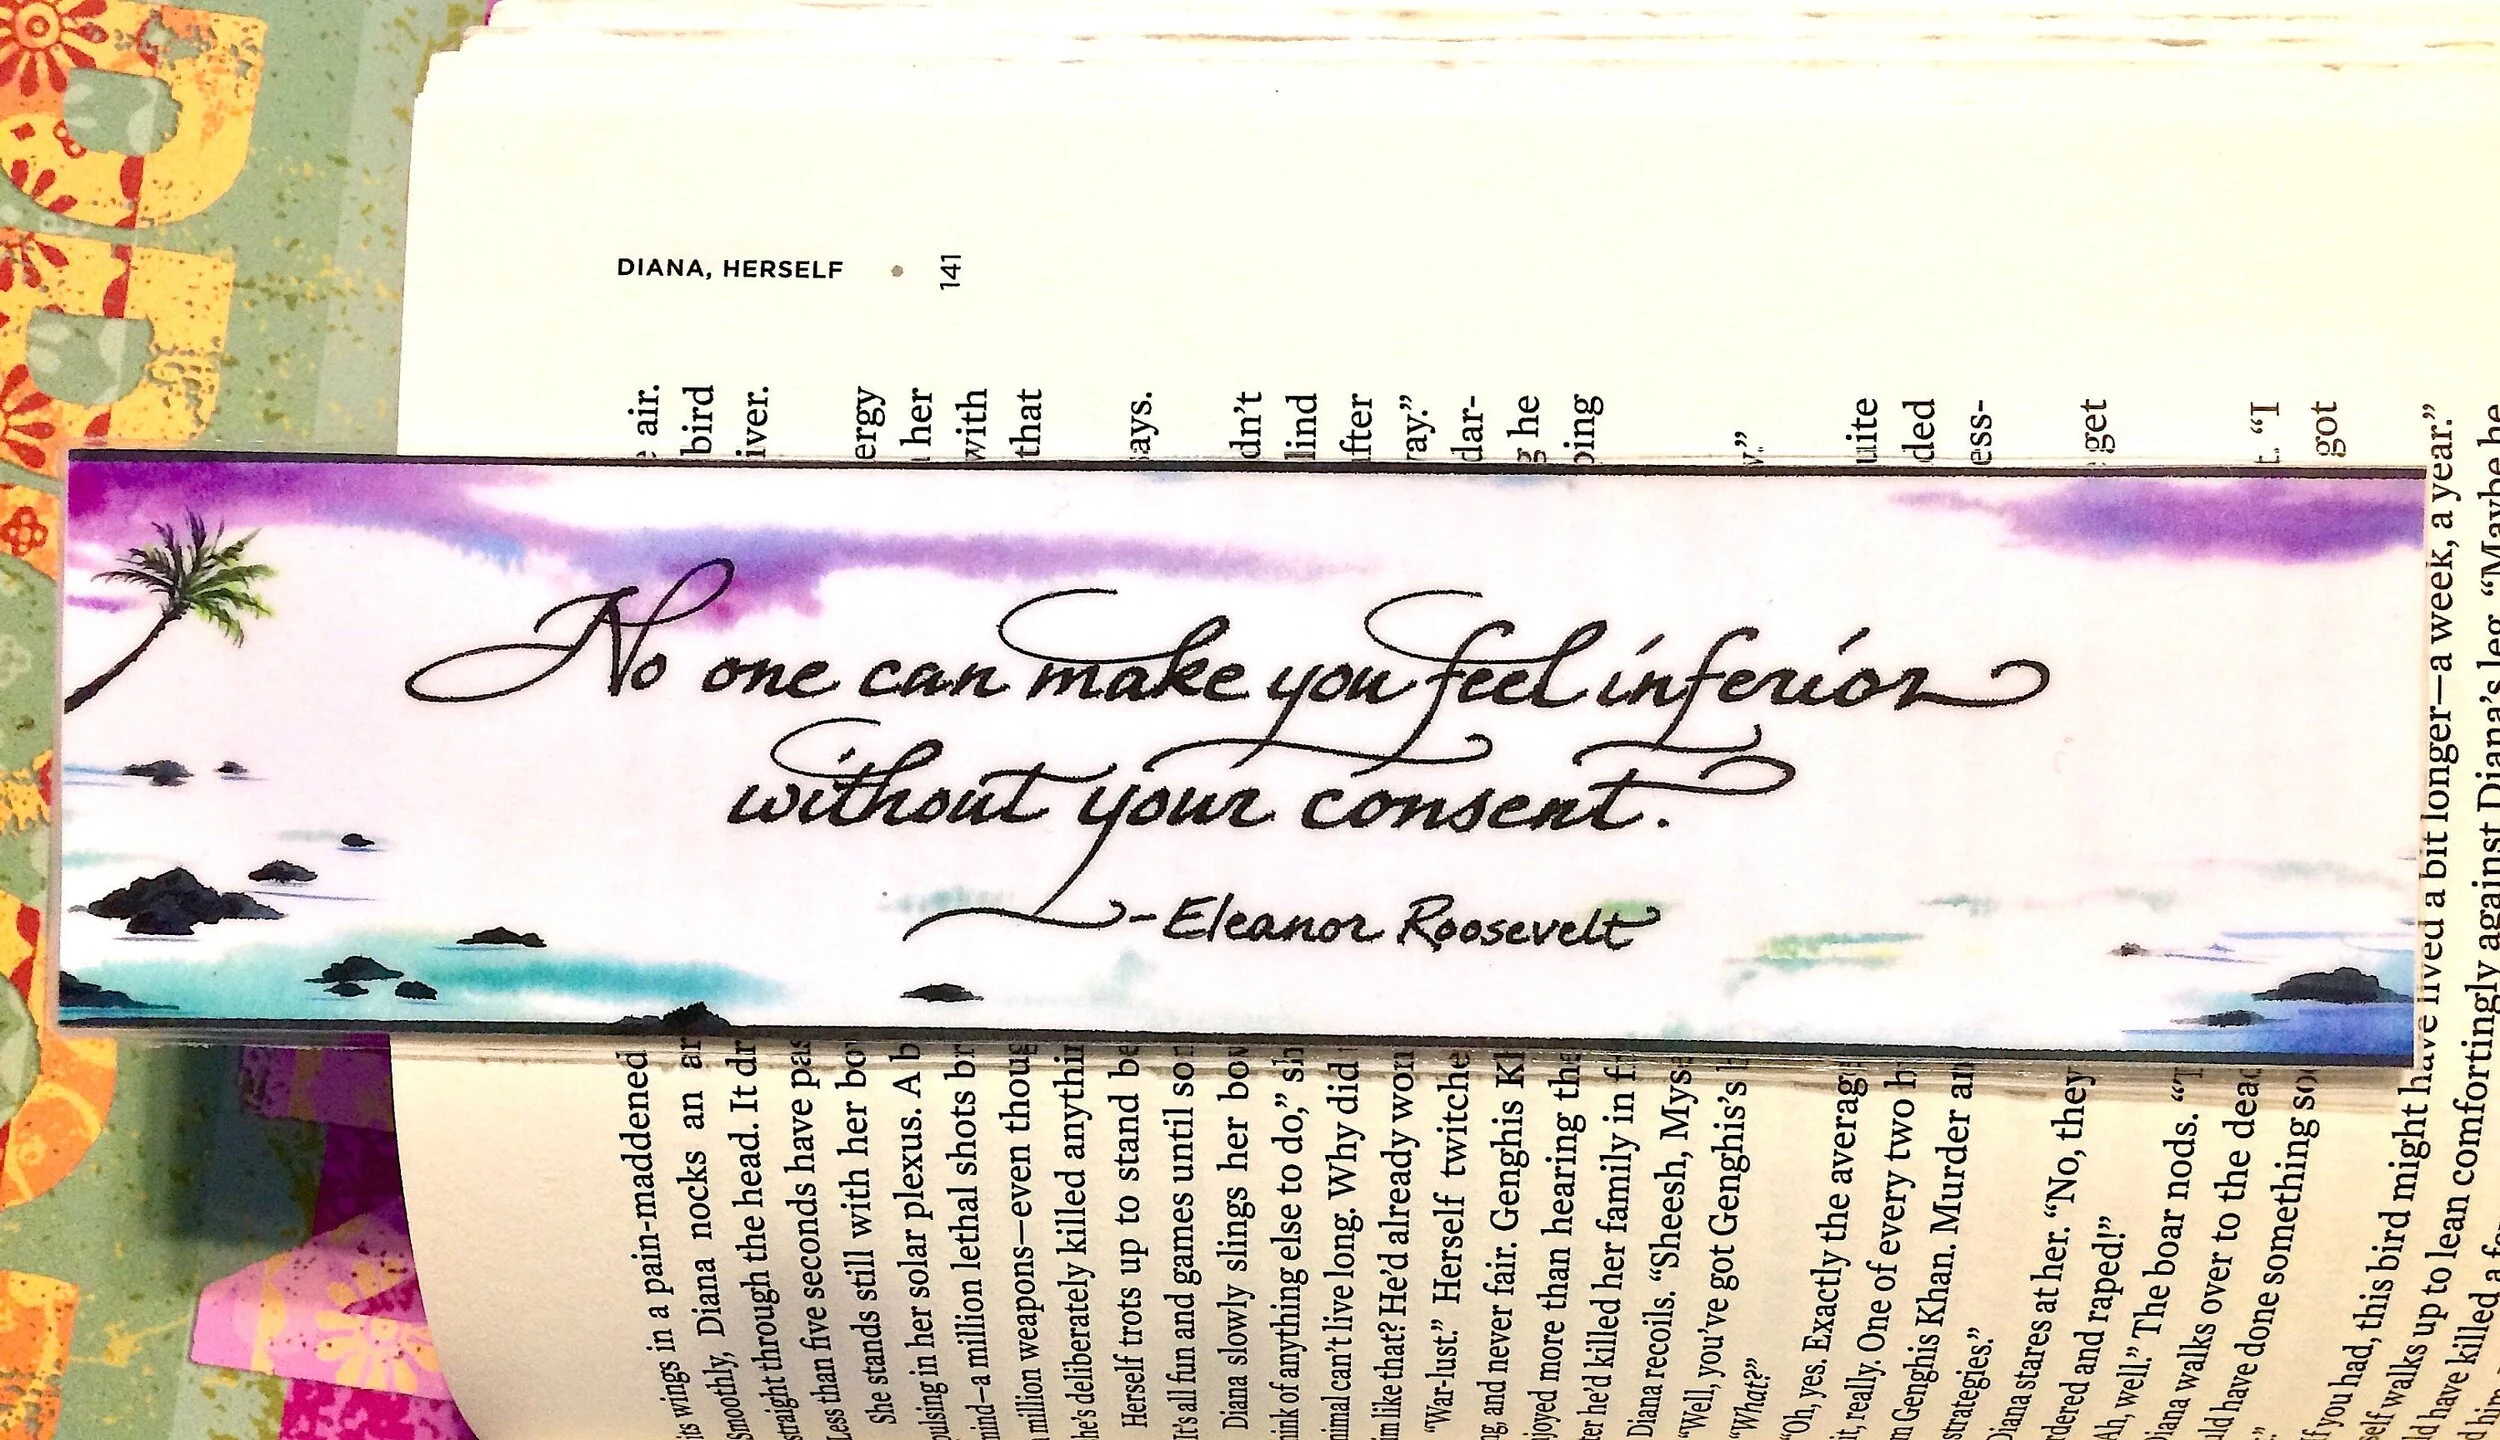 No one can make you feel inferior
without your consent.
-Eleanor Roosevelt
DIANA, HERSELF • 141
its wings in a pain-maddened air.
Smoothly, Diana nocks an ar bird
straight through the head. It dr iver.
Less than five seconds have pas
She stands still with her bow ergy
pulsing in her solar plexus. A b her
mind—a million lethal shots br with
million weapons—even thoug that
he's deliberately killed anythin
Herself trots up to stand be ays.
It's all fun and games until som
Diana slowly slings her bow dn't
hink of anything else to do," sh lind
nimal can't live long. Why did fter
im like that? He'd already won ay."
"War-lust." Herself twitche dar-
ng, and never fair. Genghis Kh g he
joyed more than hearing the ping
ter he'd killed her family in f
Diana recoils. "Sheesh, Myse
"Well, you've got Genghis's
"What?"
"Oh, yes. Exactly the averag uite
it, really. One of every two h ded
m Genghis Khan. Murder an ess-
strategies."
Diana stares at her. "No, they get
rdered and raped!"
Ah, well." The boar nods. "T t. "I
Diana walks over to the dead got
uld have done something soo
If you had, this bird might have lived a bit longer—a week, a year."
self walks up to lean comfortingly against Diana's leg. "Maybe he
ld have killed a f